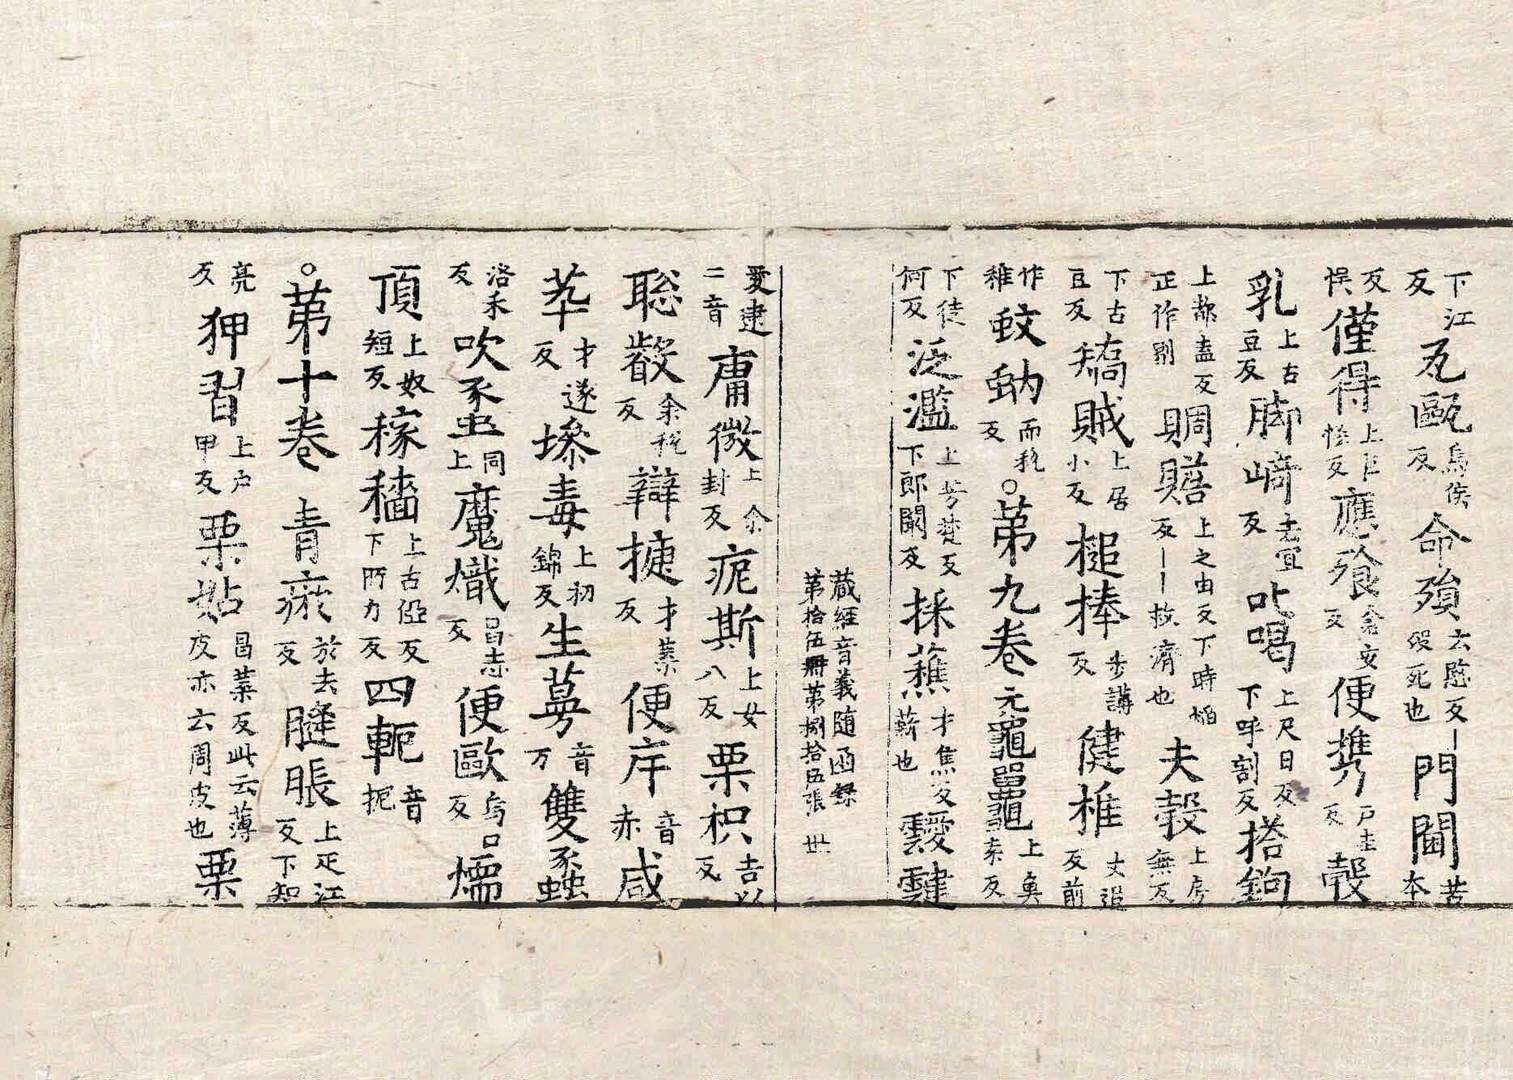 下江反瓦甌烏侯反命殞云愍反｜歿死也門閫苦本
反悮僅得上巨恡反應飱倉安反便攜戶圭反㲉
乳上古豆反脚﨑去宜反叱喝上尺日反下呼割反搭鉤
上都盍反正作剔賙贍上之由反下時焰反｜｜救濟也夫㲉上房無反
下古豆反矯賊上居小反槌棒步講反健椎丈追反前
作稚蚊蚋而稅反○第九卷元龜鼉龜上奧袁反
下徒何反泛濫上芳梵反下郎闞反採蕉才焦反薪也靉靆
藏經音義随函録第拾伍冊第捌拾伍張 世
愛逮二音庸微上余封反痆斯上女八反栗枳吉以反
聡叡余稅反辯捷才葉反便庠音赤咸
萃才遂反墋毒上初錦反生蕚音万雙䖵
洛禾反吹蠡同上魔熾昌志反便歐烏口反㷄
頂上奴短反稼穡上古俹反下所力反四軛音扼
○第十卷 青瘀於去反膖脹上疋江反下知
亮反狎習上戶甲反栗姑昌葉反此云薄皮亦云周皮也栗